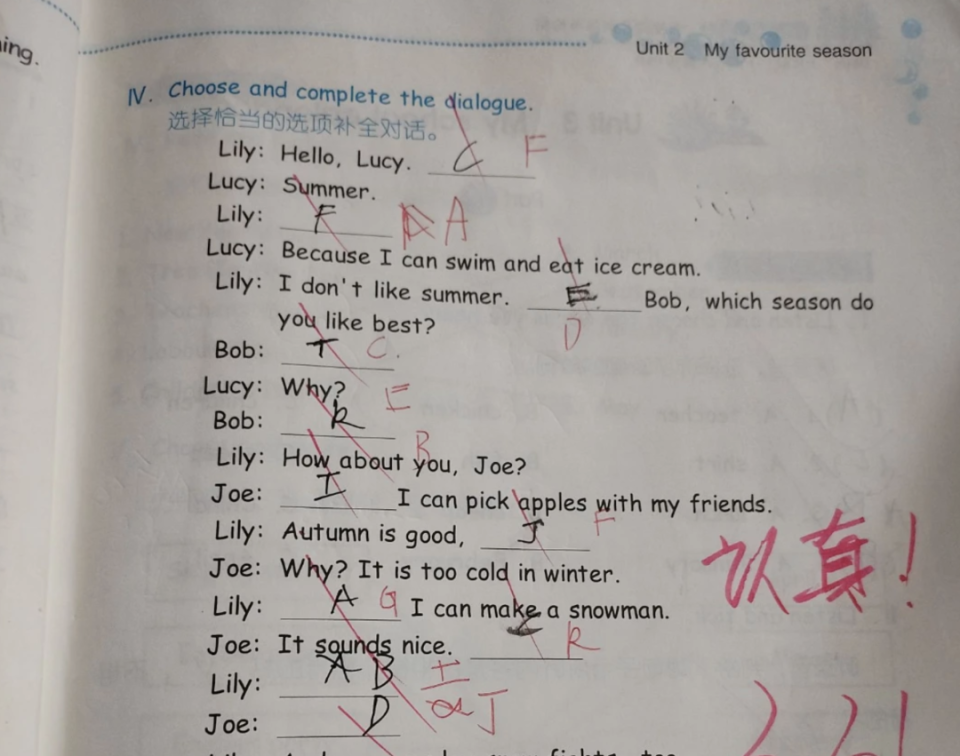 ing.
Unit 2 My favourite season
Ⅳ. Choose and complete the dialogue.
选择恰当的选项补全对话。
Lily: Hello, Lucy. C F
Lucy: Summer.
Lily: F A
Lucy: Because I can swim and eat ice cream.
Lily: I don't like summer. E Bob, which season do
you like best? D
Bob: T C.
Lucy: Why? E
Bob: R
Lily: How about you, Joe? B
Joe: I I can pick apples with my friends.
Lily: Autumn is good, J F
Joe: Why? It is too cold in winter.
Lily: A G I can make a snowman.
Joe: It sounds nice. R
Lily: A B J
Joe: D
认真!